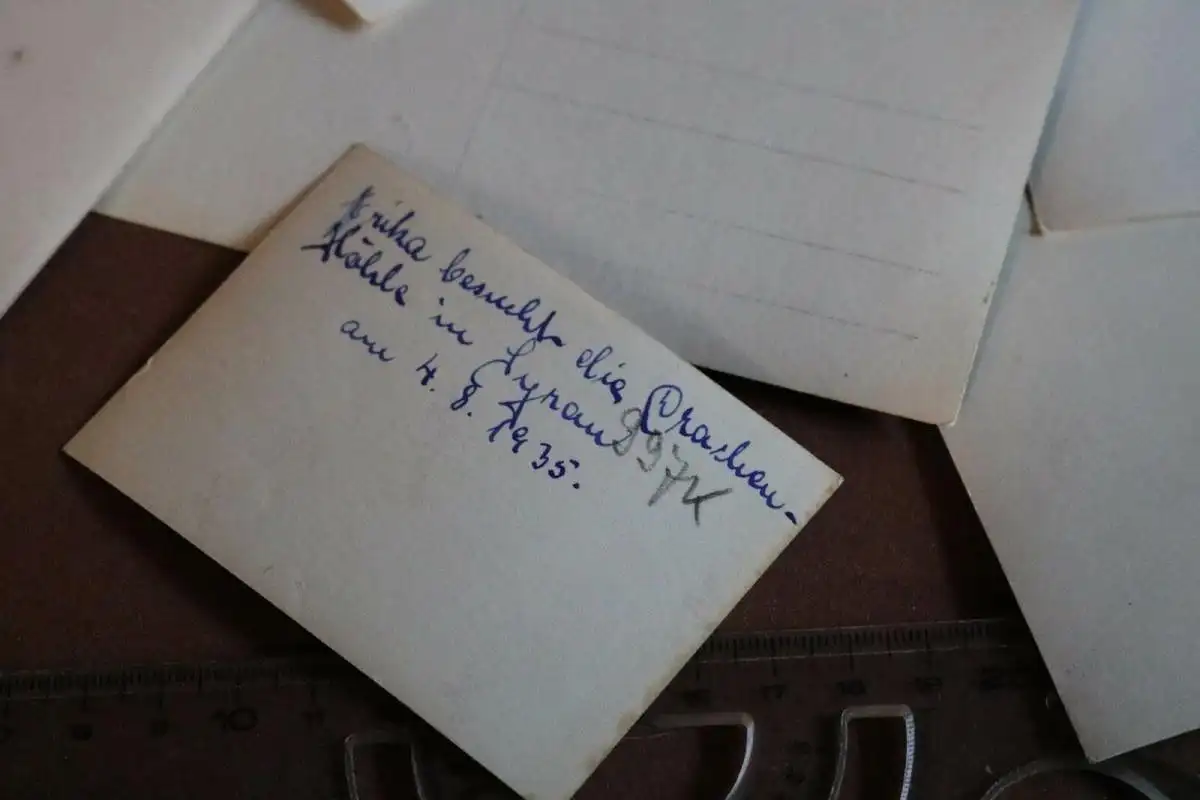 Erika besucht die Drachen-
Höhle in Syrau
am 4. 8. 1935.
997K
10
11
17
18
19
20